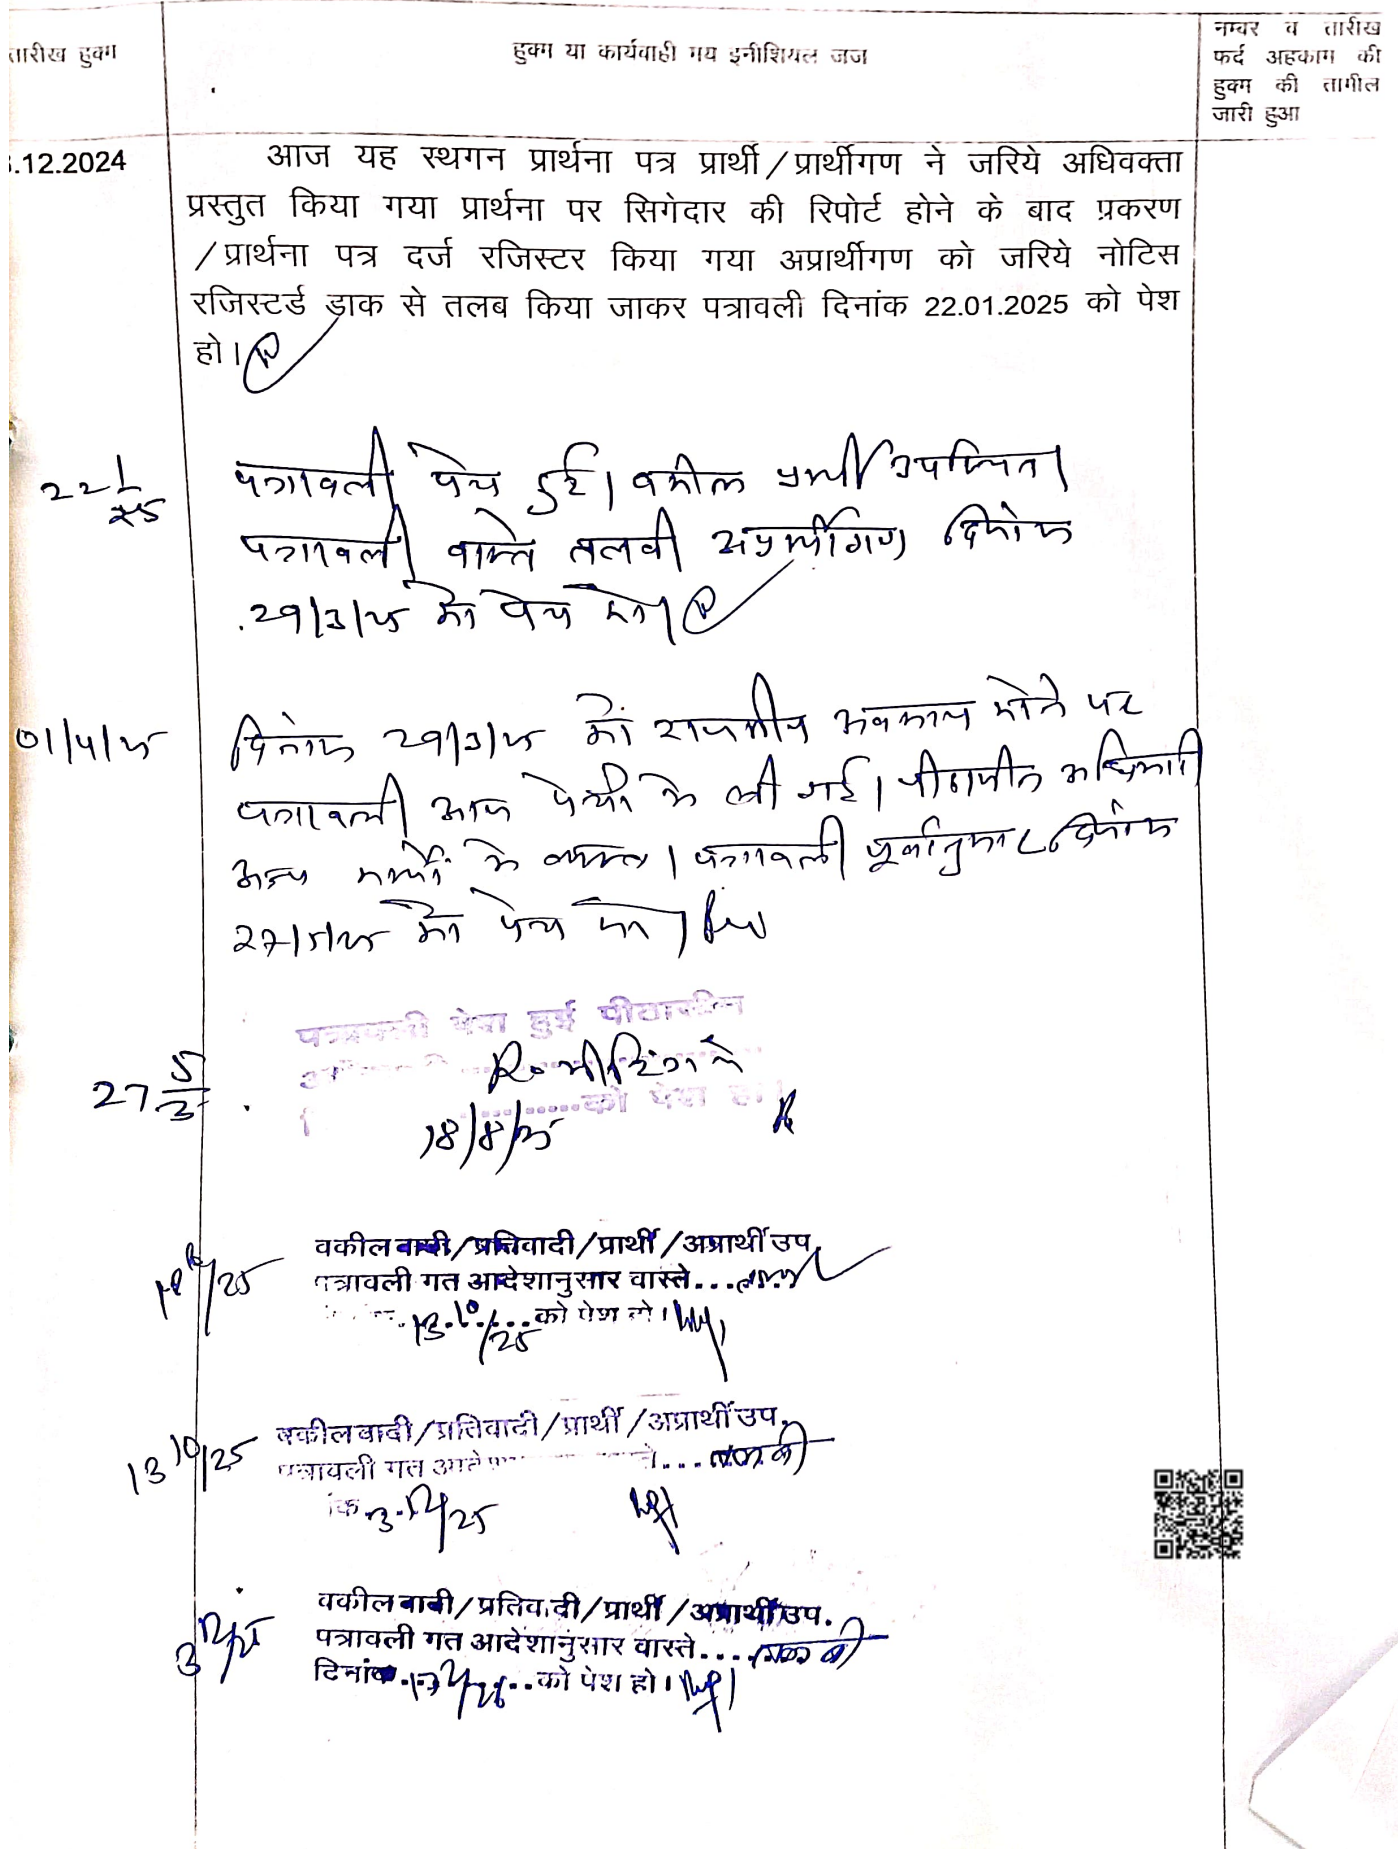 तारीख हुक्म
हुक्म या कार्यवाही मय इनीशियल जज
नम्बर व तारीख
फर्द अहकाम की
हुक्म की तामील
जारी हुआ
.12.2024
आज यह स्थगन प्रार्थना पत्र प्रार्थी/प्रार्थीगण ने जरिये अधिवक्ता
प्रस्तुत किया गया प्रार्थना पर सिगेदार की रिपोर्ट होने के बाद प्रकरण
/प्रार्थना पत्र दर्ज रजिस्टर किया गया अप्रार्थीगण को जरिये नोटिस
रजिस्टर्ड डाक से तलब किया जाकर पत्रावली दिनांक 22.01.2025 को पेश
हो।
22 1/25
पत्रावली पेश हुई। वकील प्रार्थी उपस्थित।
पत्रावली वास्ते तलबी अप्रार्थीगण दिनांक
29/3/25 को पेश हो।
01/4/25
दिनांक 29/3/25 को राजकीय अवकाश होने पर
पत्रावली आज पेशी में ली गई। पीठासीन अधिकारी
अन्य कार्यों में व्यस्त। पत्रावली पूर्वानुसार दिनांक
27/5/25 को पेश हो।
पत्रावली पेश हुई पीठासीन
27 5
को पेश हो।
18/8/25
वकील वादी/प्रतिवादी/प्रार्थी/अप्रार्थी उप.
18 8/25
पत्रावली गत आदेशानुसार वास्ते...
13.10/25 को पेश हो।
वकील वादी/प्रतिवादी/प्रार्थी/अप्रार्थी उप.
13 10/25
पत्रावली गत ... तलबी
3.12/25
वकील वादी/प्रतिवादी/प्रार्थी/अप्रार्थी उप.
3 12/25
पत्रावली गत आदेशानुसार वास्ते.... तलबी
दिनांक ... को पेश हो।